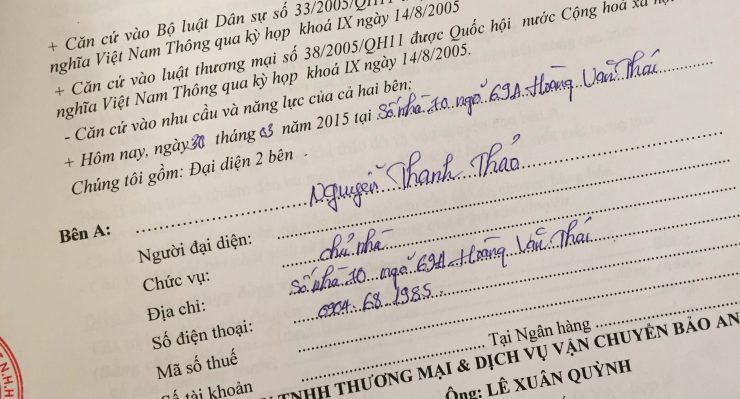 + Căn cứ vào Bộ luật Dân sự số 33/2005/QH11
nghĩa Việt Nam Thông qua kỳ họp khoá IX ngày 14/8/2005
+ Căn cứ vào luật thương mại số 38/2005/QH11 được Quốc hội nước Cộng hoà xã
nghĩa Việt Nam Thông qua kỳ họp khoá IX ngày 14/8/2005.
- Căn cứ vào nhu cầu và năng lực của cả hai bên;
+ Hôm nay, ngày 30 tháng 03 năm 2015 tại Số nhà 70 ngõ 69A Hoàng Văn Thái
Chúng tôi gồm: Đại diện 2 bên
Bên A:
Người đại diện: Nguyễn Thanh Thảo
Chức vụ: chủ nhà
Địa chỉ: Số nhà 70 ngõ 69A Hoàng Văn Thái
Số điện thoại: 0904.68.1985.
Mã số thuế
Số tài khoản Tại Ngân hàng
TNHH THƯƠNG MẠI & DỊCH VỤ VẬN CHUYỂN BẢO AN
Ông: LÊ XUÂN QUỲNH
N.H.H